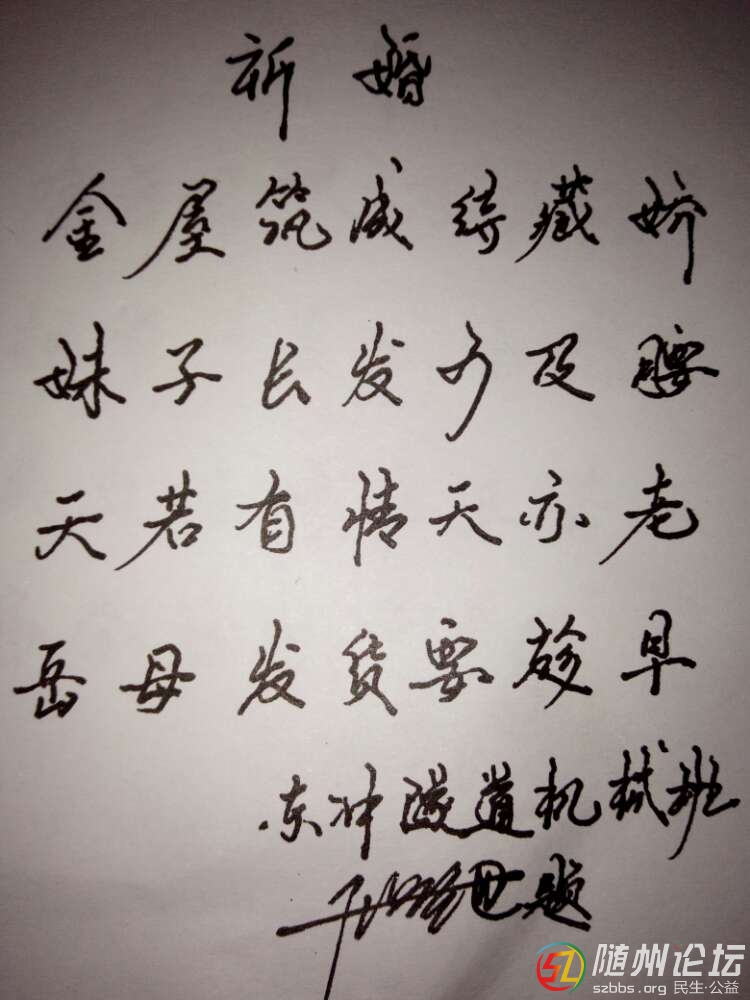 祈婚
金屋筑成待藏娇
妹子长发今及腰
天若有情天亦老
岳母发货要趁早
东冲隧道机械班
题
随州论坛
szbbs.org 民生·公益